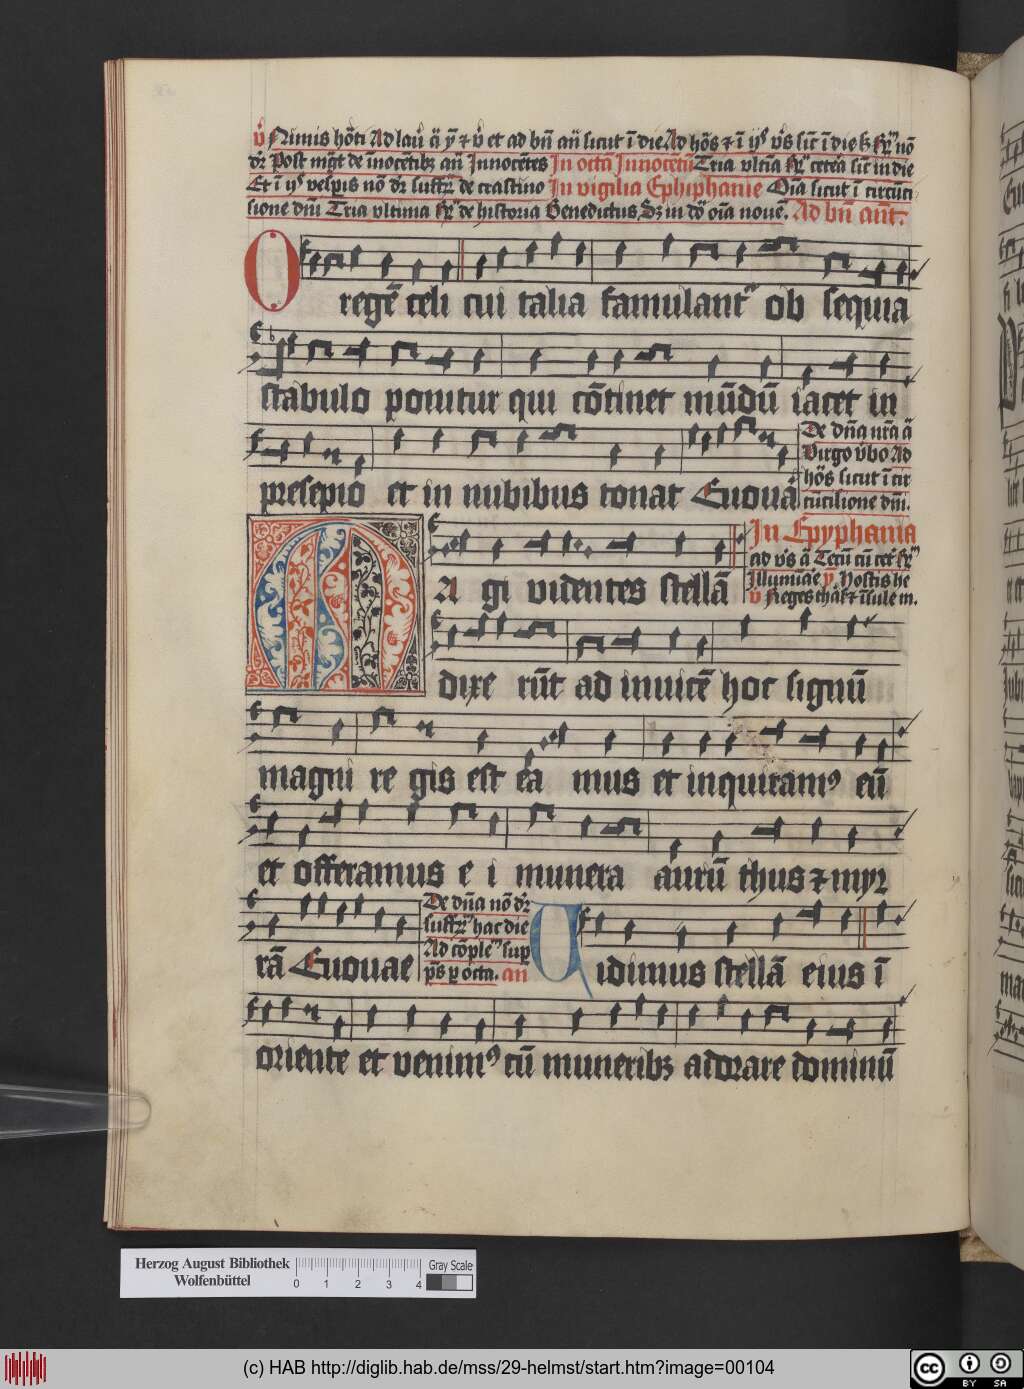 v̉ Nimis hōti Ad lau̇ ā ẏ ⁊ v̉ et ad bn̄ an̄ sicut ī die Ad hōs ⁊ ī ijs v̉s sic̄ ī die
dr̄ Post de īnocētibꝫ an̄ Innocētes In octa Innocētū Tria vltīa cetea sic̄ in die
Et ī ijs vesꝑis nō dr̄ suffr̄ de crastino In vigilia Ephiphanie Oīa sicut ī circūci
sione dnī Tria vltima de historia Benedictus, Sꝫ in dō oīa nouē. Ad bn̄ ant:
O regē celi cui talia famulant᷑ ob sequia
stabulo ponitur qui cōtinet mūdū iacet in
presepio et in nubibus tonat Euoua
De dn̄a nr̄a ā
Virgo v̉bo Ad
hōs sicut ī cir
cūcisione dnī.
In Epyphania
ad v̉s ā Tecū cū cet᷑
Illumiāe ẏ Hostis he
v̉ Reges thar̄ ⁊ īsule m.
MA gi videntes stellā
dixe rūt ad inuicē hoc signū
magni re gis est ea mus et inquiramꝰ eū
et offeramus e i munera aurū thus ⁊ myr
rā Euouae
De dn̄a nō dr̄
suffr̄ hac die
Ad cōple sup
ps̄ ꝑ octa. an̄
Uidimus stellā eius ī
oriente et venimꝰ cū muneribꝫ adorare dominū
Herzog August Bibliothek
Wolfenbüttel
0 1 2 3 4
Gray Scale
(c) HAB http://diglib.hab.de/mss/29-helmst/start.htm?image=00104
cc BY SA